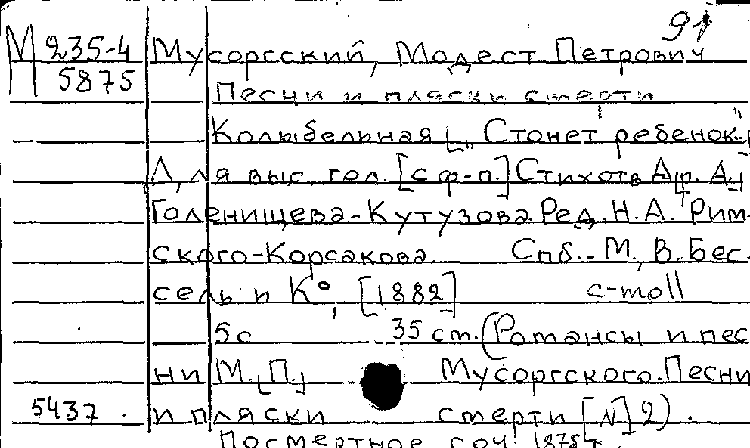 91
М 235-4 Мусоргский, Модест Петрович
П 5875
Песни и пляски смерти
Колыбельная [„Стонет ребенок"]
Для выс. гол. [с ф-п.] Стихотв. А[р. А.]
Голенищева-Кутузова. Ред. Н.А. Рим-
ского-Корсакова. Спб.-М., В. Бес-
сель и К°, [1882] c-moll
5 с 35 см. (Романсы и пес
ни М.[П.] Мусоргского. Песни
5437. и пляски смерти [N] 2).
Посмертное соч.